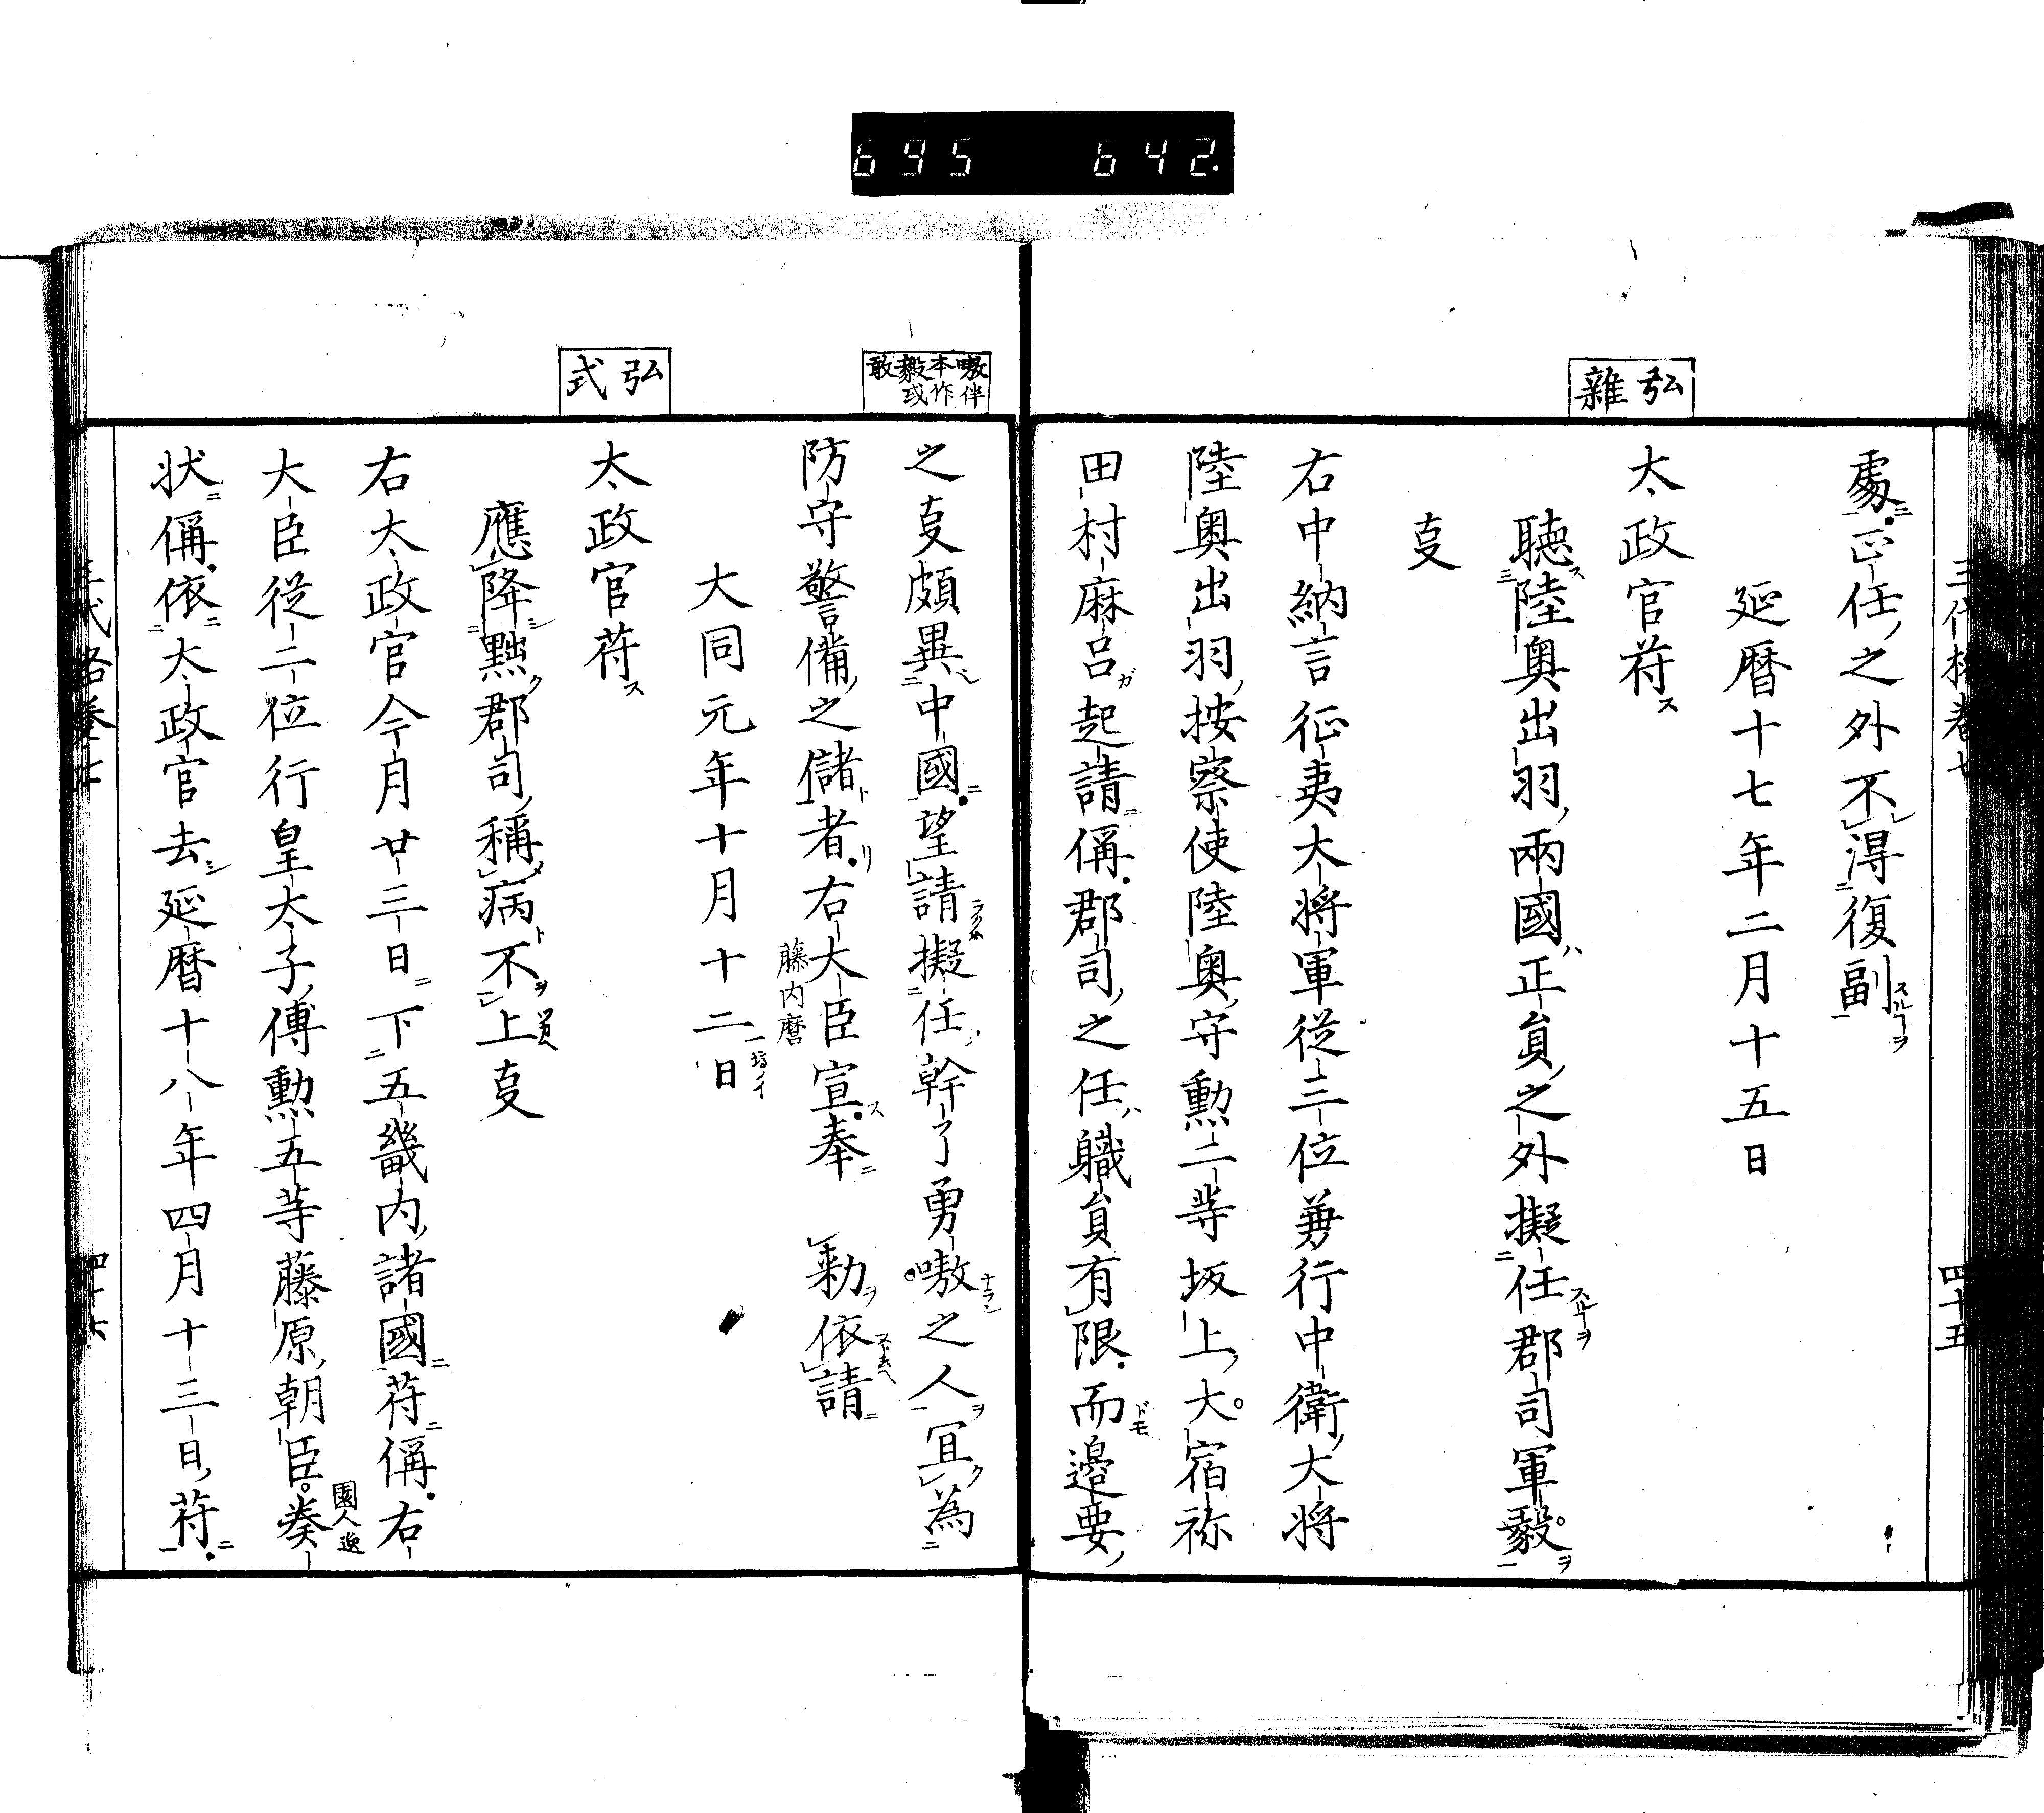 695 642.
三代格卷七 四十五
處正任之外不得復副
延暦十七年二月十五日
弘雜
太政官苻
聽陸奧出羽兩國正員之外擬任郡司軍毅
㕝
右中納言征夷大將軍從三位兼行中衛大將
陸奧出羽按察使陸奧守勲二等坂上大宿祢
田村麻呂起請偁郡司之任職員有限而邊要
之㕝頗異中國望請擬任幹了勇嗷之人冝為
嗷伴本作毅或敢
防守警備之儲者右大臣宣奉 勅依請
藤内麿
大同元年十月十二日
弘式
太政官苻
應降黜郡司稱病不上㕝
右太政官今月廿三日下五畿内諸國苻偁右
大臣從二位行皇太子傅勲五等藤原朝臣奏
園人
状偁依太政官去延暦十八年四月十三日苻
三代格卷七 四十六